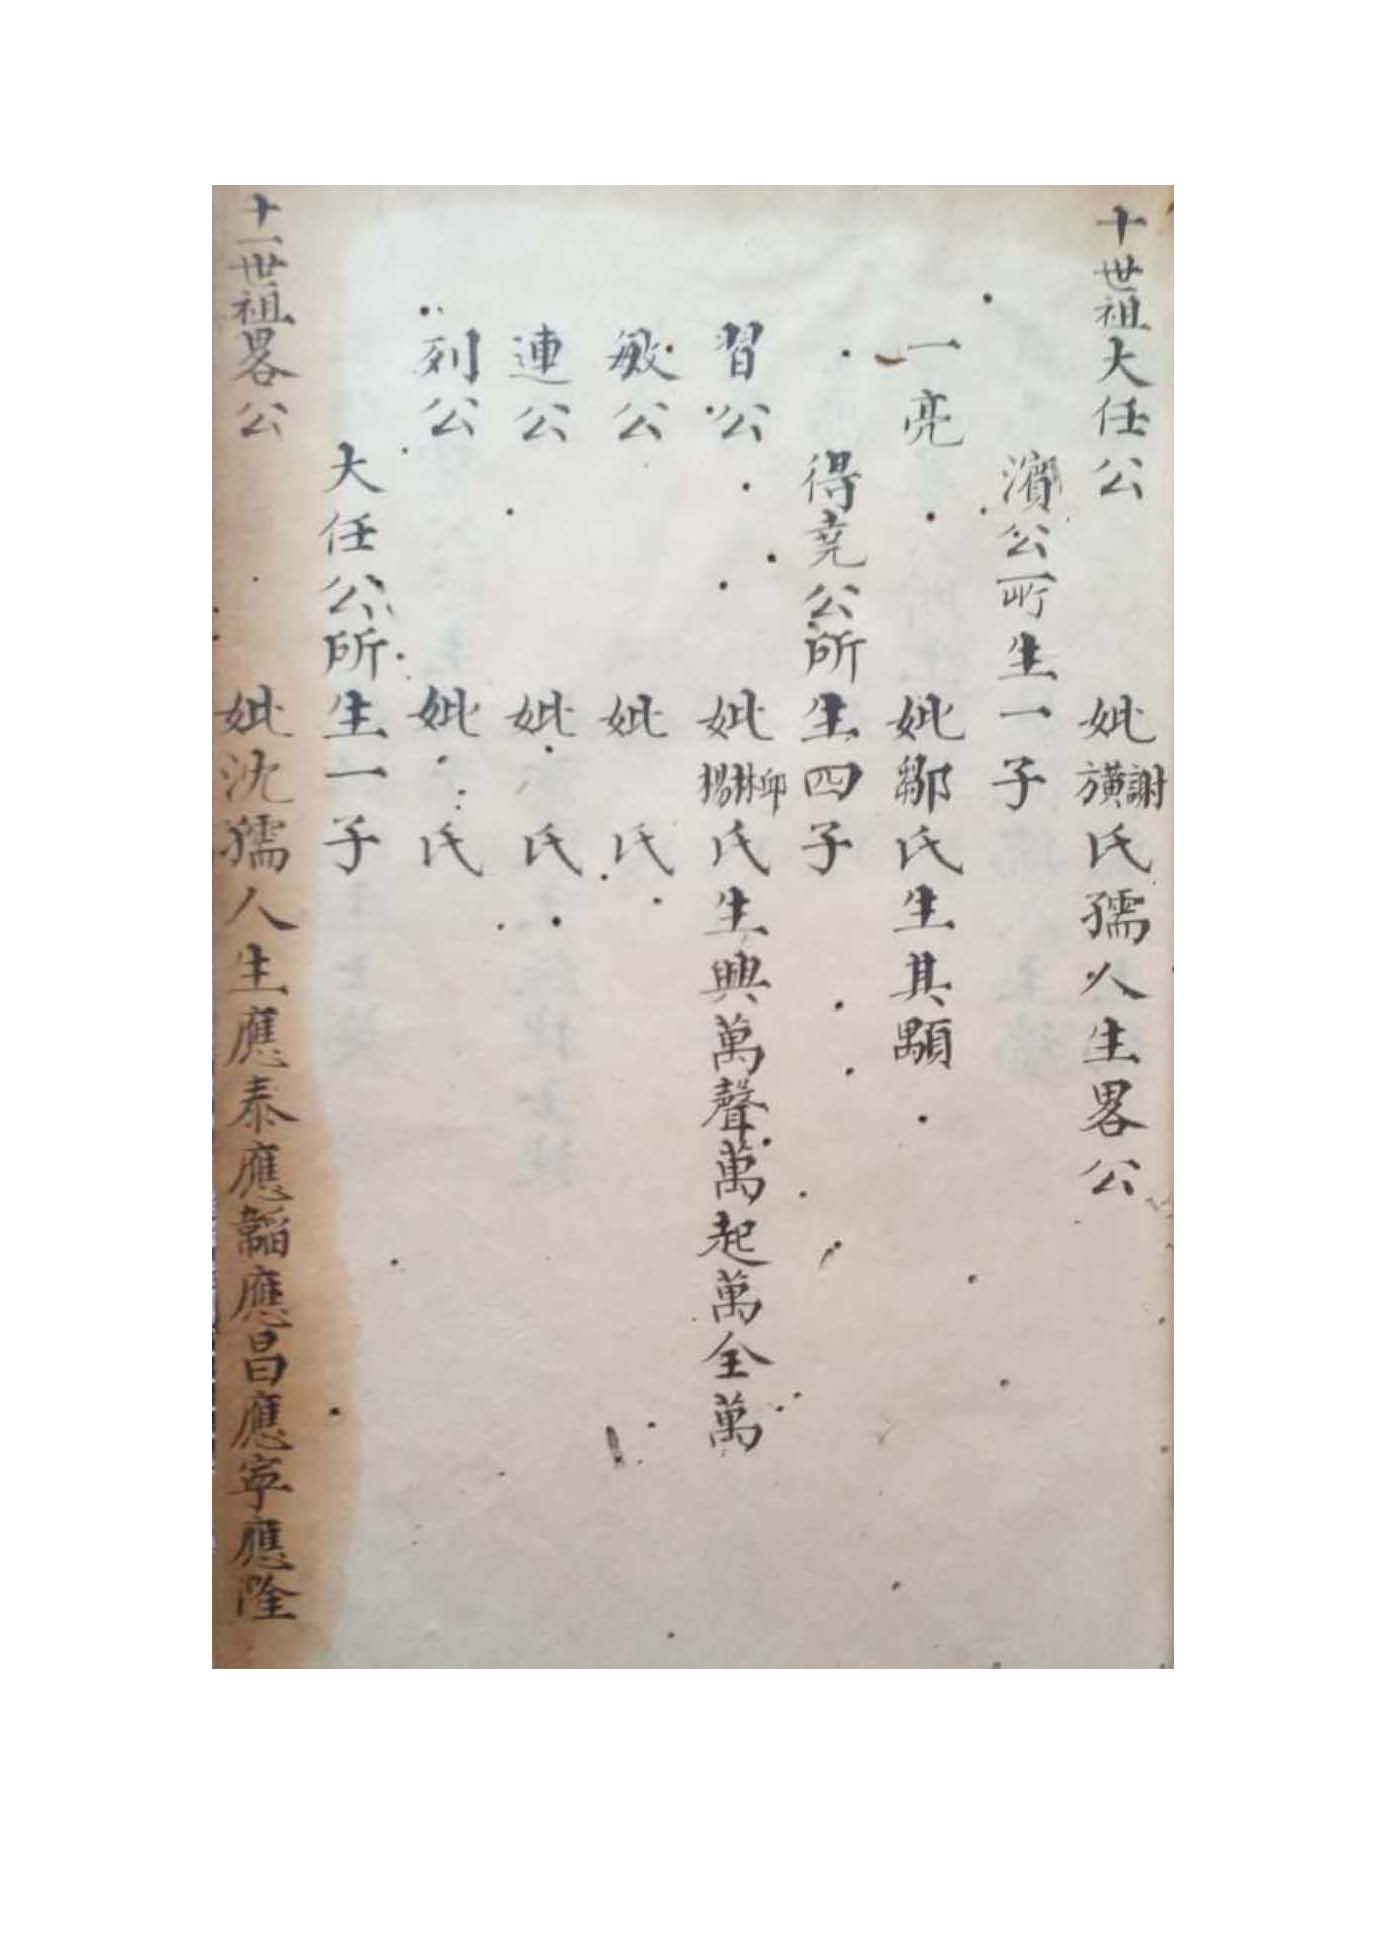 十世祖大任公 妣謝黃氏孺人生畧公
濱公所生一子
一亮 妣鄒氏生其顒
得堯公所生四子
習公 妣邱林楊氏生興萬聲萬起萬全萬
敏公 妣 氏
連公 妣 氏
列公 妣 氏
大任公所生一子
十一世祖畧公 妣沈孺人生應泰應韜應昌應寧應隆